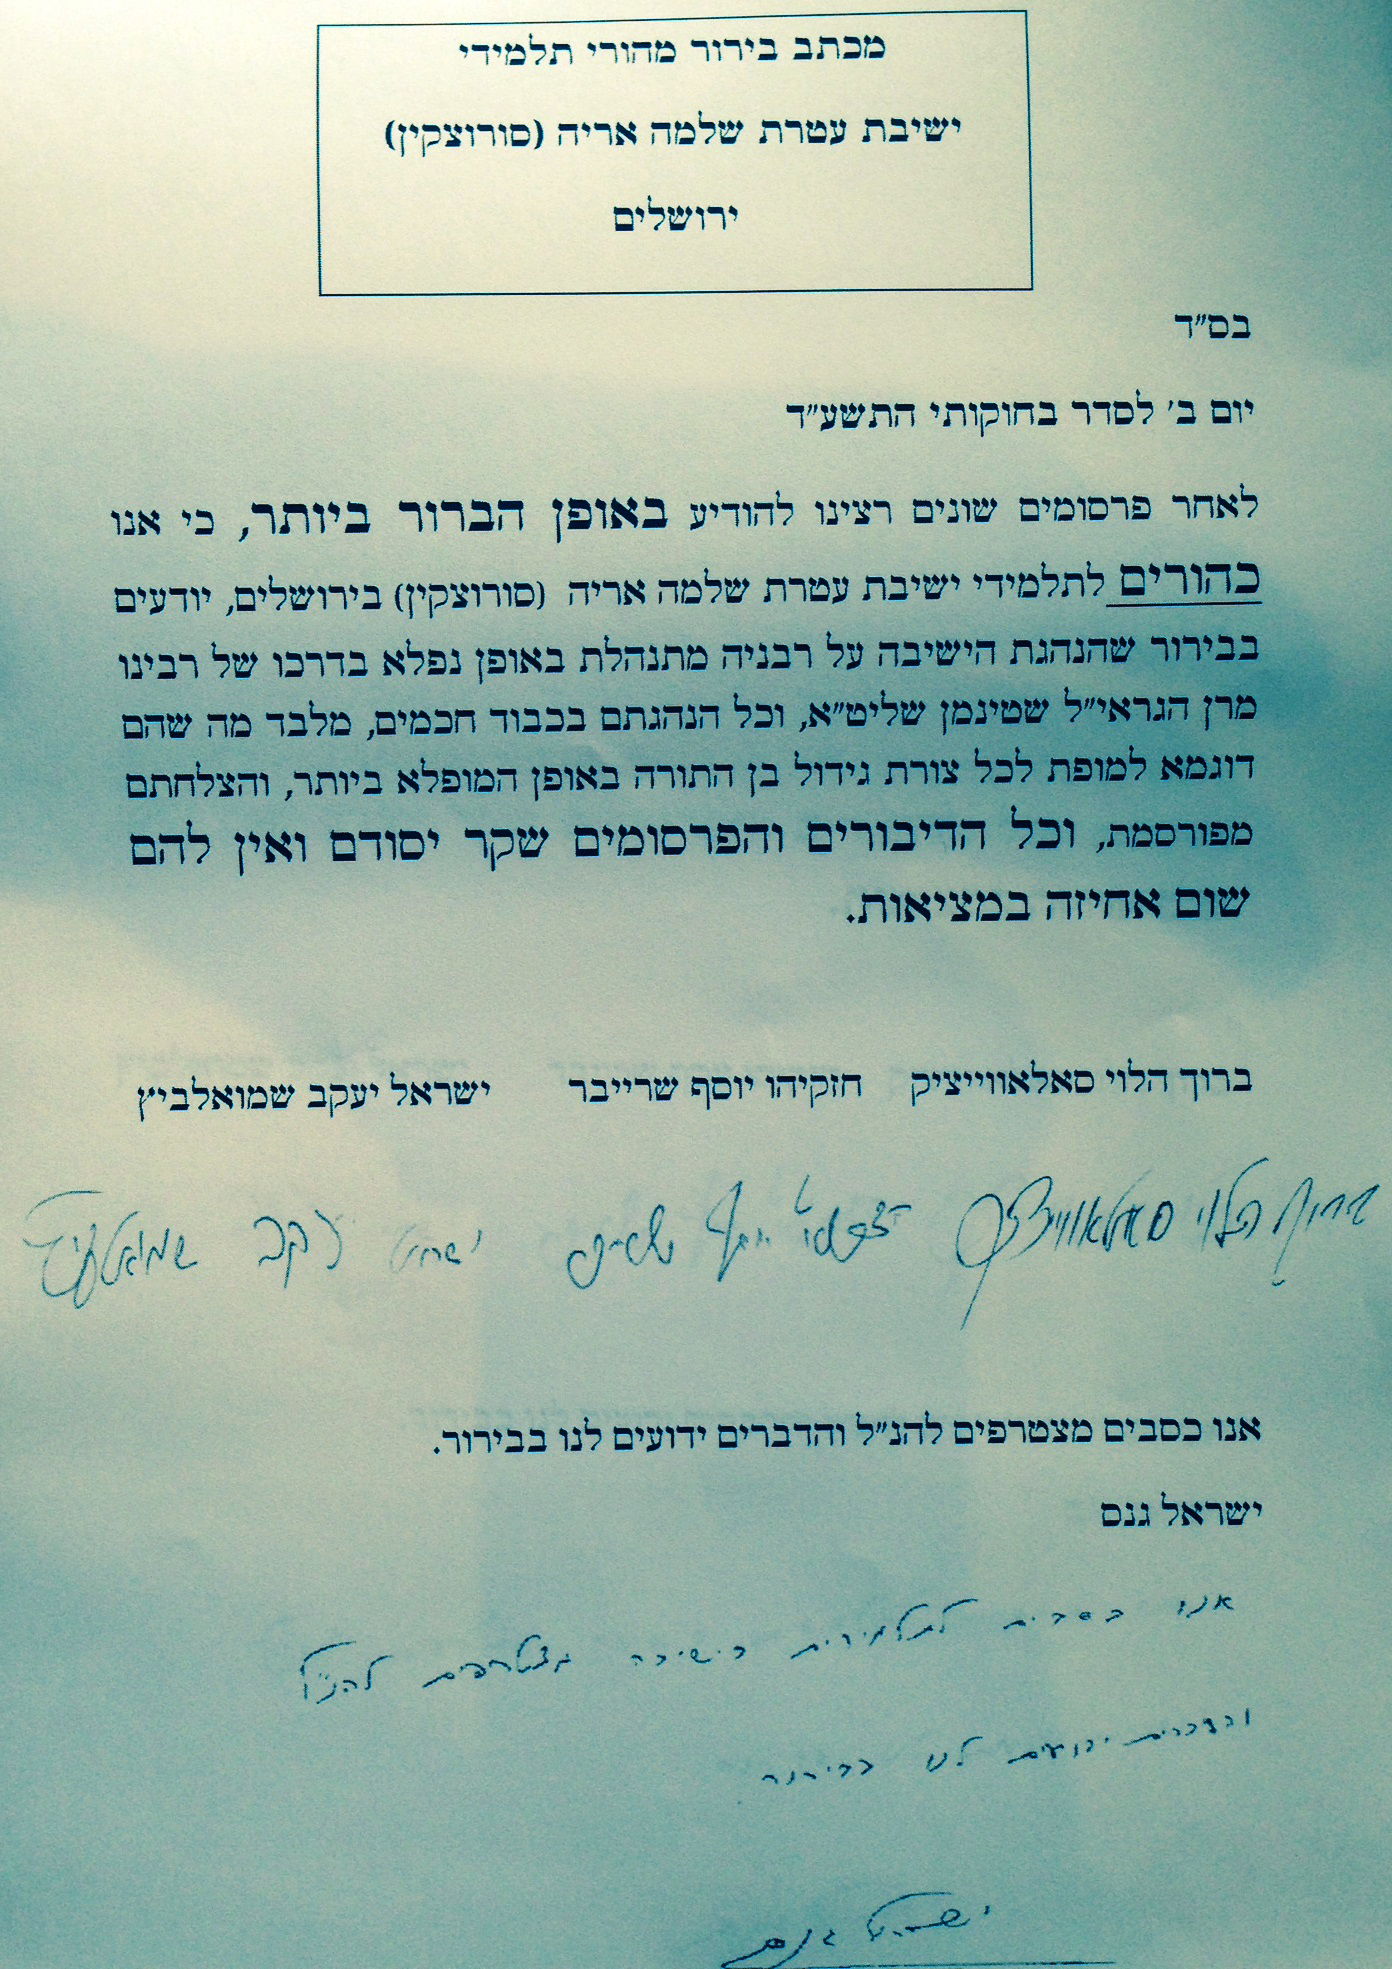 מכתב בירור מהורי תלמידי
ישיבת עטרת שלמה אריה (סורוצקין)
ירושלים
בס״ד
יום ב׳ לסדר בחוקותי התשע״ד
לאחר פרסומים שונים רצינו להודיע באופן הברור ביותר, כי אנו
כהורים לתלמידי ישיבת עטרת שלמה אריה (סורוצקין) בירושלים, יודעים
בבירור שהנהגת הישיבה על רבניה מתנהלת באופן נפלא בדרכו של רבינו
מרן הגראי״ל שטינמן שליט״א, וכל הנהגתם בכבוד חכמים, מלבד מה שהם
דוגמא למופת לכל צורת גידול בן התורה באופן המופלא ביותר, והצלחתם
מפורסמת, וכל הדיבורים והפרסומים שקר יסודם ואין להם
שום אחיזה במציאות.
ברוך הלוי סאלאווייציק חזקיהו יוסף שרייבר ישראל יעקב שמואלביץ
ברוך הלוי סאלאווייציק חזקיהו יוסף שרייבר ישראל יעקב שמואלביץ
אנו כסבים מצטרפים להנ״ל והדברים ידועים לנו בבירור.
ישראל גנס
אנו כסבים לתלמידים בישיבה מצטרפים להנ״ל
והדברים ידועים לנו בבירור
ישראל גנס